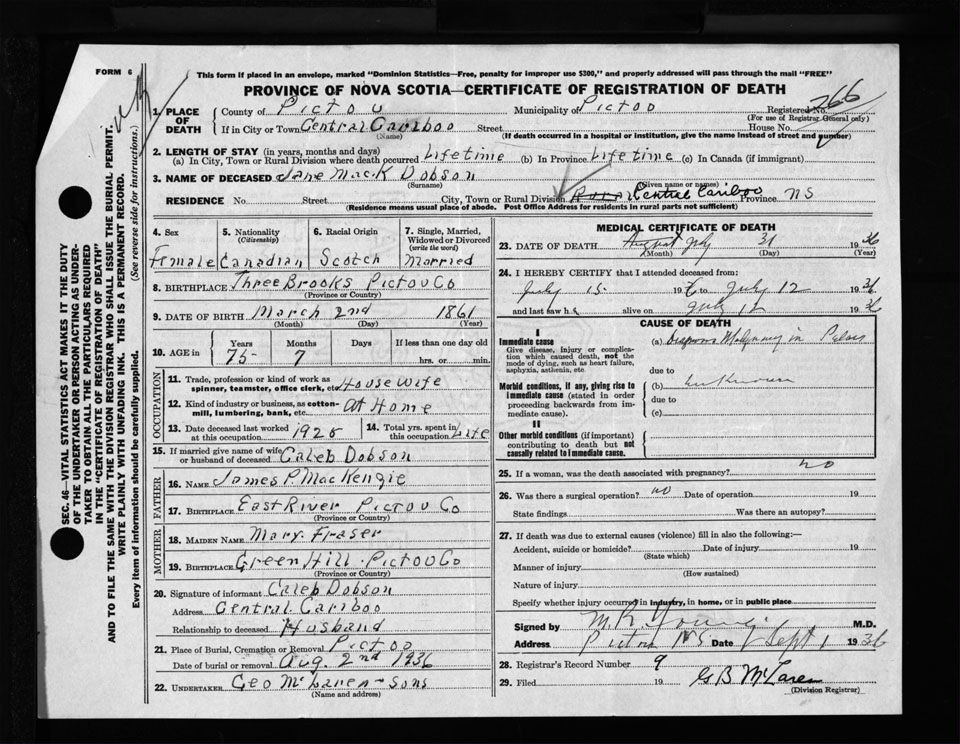 FORM 6
This form if placed in an envelope, marked "Dominion Statistics—Free, penalty for improper use $300," and properly addressed will pass through the mail "FREE"
PROVINCE OF NOVA SCOTIA—CERTIFICATE OF REGISTRATION OF DEATH
1. PLACE OF DEATH County of Pictou Municipality of Pictoo Registered No. 266
(For use of Registrar General only)
If in City or Town Central Cariboo Street House No.
(Name) (If death occurred in a hospital or institution, give the name instead of street and number)
2. LENGTH OF STAY (in years, months and days)
(a) In City, Town or Rural Division where death occurred Lifetime (b) In Province Lifetime (c) In Canada (if immigrant)
3. NAME OF DECEASED Jane MacK Dobson
(Surname) (Given name or names)
RESIDENCE No. Street City, Town or Rural Division Central Cariboo Province NS
(Residence means usual place of abode. Post Office Address for residents in rural parts not sufficient)
4. Sex 5. Nationality (Citizenship) 6. Racial Origin 7. Single, Married, Widowed or Divorced (write the word)
Female Canadian Scotch Married
8. BIRTHPLACE Three Brooks Pictou Co
(Province or Country)
9. DATE OF BIRTH March 2nd 1861
(Month) (Day) (Year)
10. AGE in Years Months Days If less than one day old
75 7 hrs. or min.
OCCUPATION
11. Trade, profession or kind of work as spinner, teamster, office clerk, etc. House Wife
12. Kind of industry or business, as cotton-mill, lumbering, bank, etc. At Home
13. Date deceased last worked at this occupation 1925 14. Total yrs. spent in this occupation Life
15. If married give name of wife or husband of deceased Caleb Dobson
FATHER
16. NAME James P. MacKenzie
17. BIRTHPLACE East River Pictou Co
(Province or Country)
MOTHER
18. MAIDEN NAME Mary Fraser
19. BIRTHPLACE Green Hill Pictou Co
(Province or Country)
20. Signature of informant Caleb Dobson
Address Central Cariboo
Relationship to deceased Husband
21. Place of Burial, Cremation or Removal Pictoo
Date of burial or removal Aug. 2nd 1936
22. UNDERTAKER Geo McLaren & Sons
(Name and address)
MEDICAL CERTIFICATE OF DEATH
23. DATE OF DEATH August July 31 1936
(Month) (Day) (Year)
24. I HEREBY CERTIFY that I attended deceased from:
July 15 1936 to July 12 1936
and last saw h alive on July 12 1936
CAUSE OF DEATH
I
Immediate cause
Give disease, injury or complication which caused death, not the mode of dying, such as heart failure, asphyxia, asthenia, etc
(a) Malignancy in Pelvis
due to
Morbid conditions, if any, giving rise to immediate cause (stated in order proceeding backwards from immediate cause).
(b) unknown
due to
(c)
II
Other morbid conditions (if important) contributing to death but not causally related to immediate cause.
25. If a woman, was the death associated with pregnancy? no
26. Was there a surgical operation? no Date of operation 19
State findings Was there an autopsy?
27. If death was due to external causes (violence) fill in also the following:—
Accident, suicide or homicide? Date of injury 19
(State which)
Manner of injury
(How sustained)
Nature of injury
Specify whether injury occurred in industry, in home, or in public place
Signed by M R Young M.D.
Address Pictou NS Date Sept 1 1936
28. Registrar's Record Number 9
29. Filed 19 G B McLaren
(Division Registrar)
SEC. 46—VITAL STATISTICS ACT MAKES IT THE DUTY
OF THE UNDERTAKER OR PERSON ACTING AS UNDER-
TAKER TO OBTAIN ALL THE PARTICULARS REQUIRED
IN THE "CERTIFICATE OF REGISTRATION OF DEATH"
AND TO FILE THE SAME WITH THE DIVISION REGISTRAR WHO SHALL ISSUE THE BURIAL PERMIT.
WRITE PLAINLY WITH UNFADING INK. THIS IS A PERMANENT RECORD.
Every item of information should be carefully supplied. (See reverse side for instructions.)